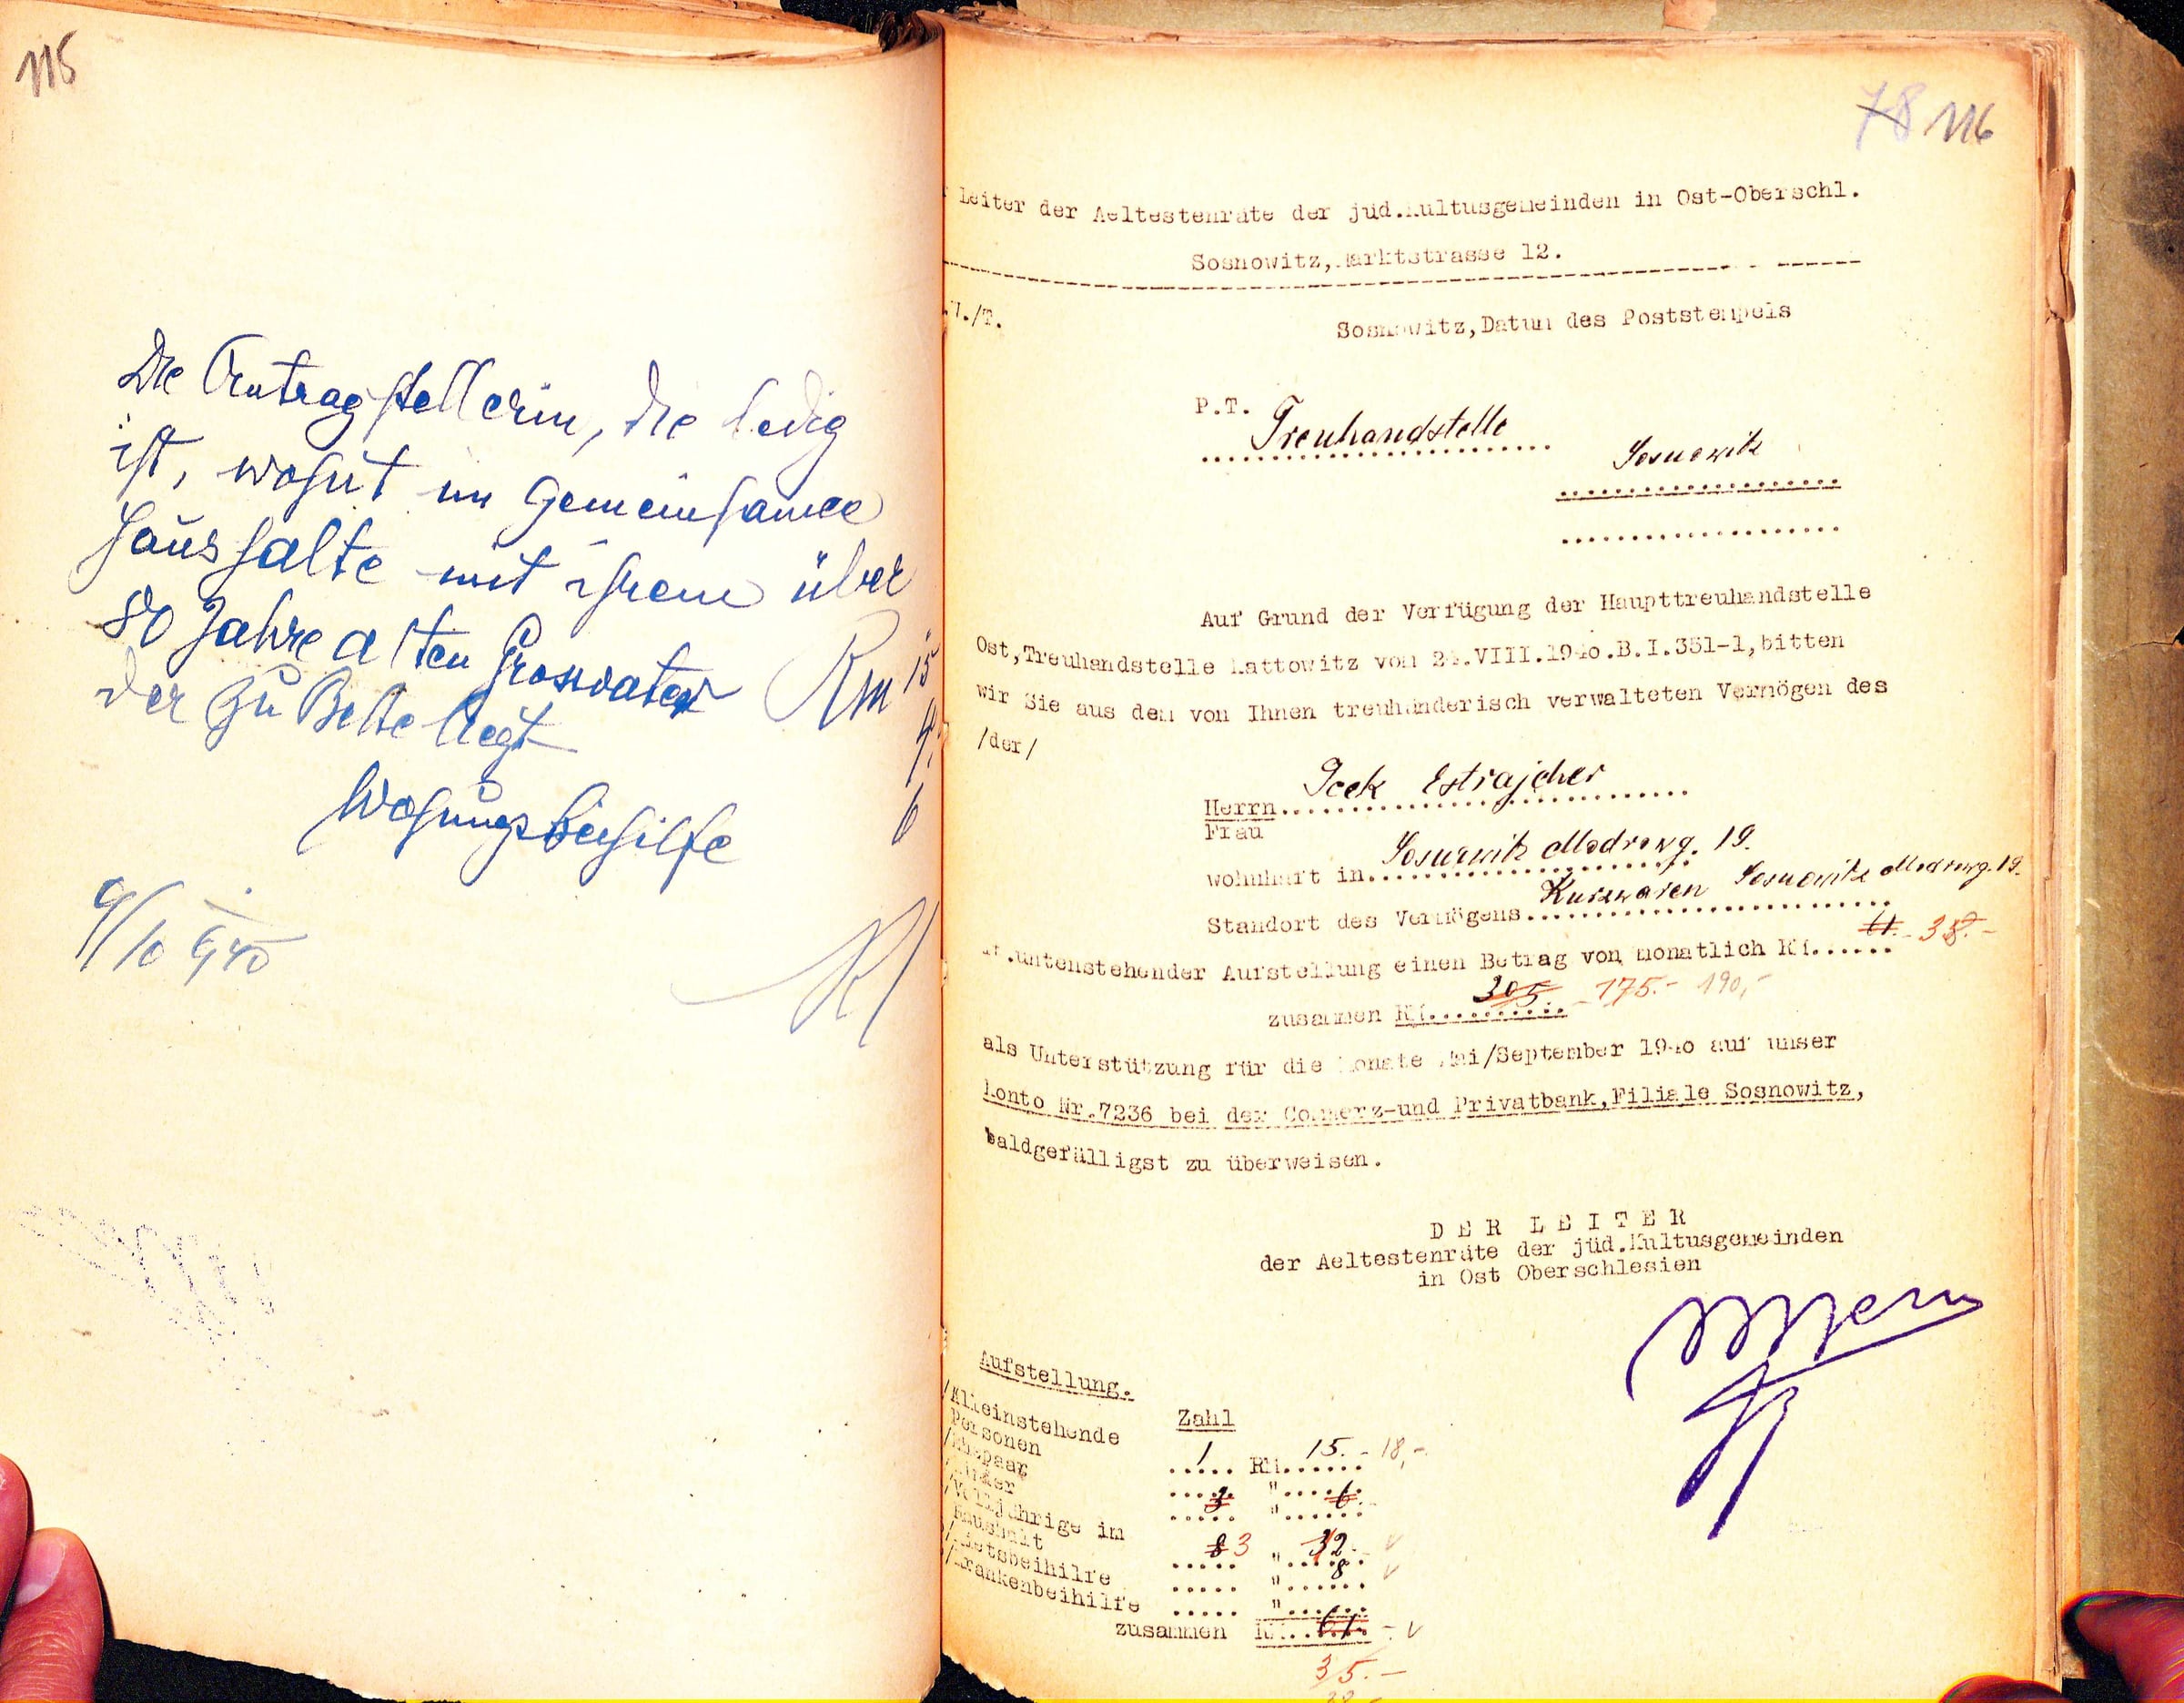 115
Die Antragstellerin, die ledig
ist, wohnt im gemeinsamen
Haushalte mit ihrem über
80 Jahre alten Grossvater
der zu Bette liegt
Rm 15
4.
6
Wohnungsbeihilfe
9/10
78 116
Leiter der Aeltestenräte der jüd.Kultusgemeinden in Ost-Oberschl.
Sosnowitz,Marktstrasse 12.
/T.
Sosnowitz,Datum des Poststempels
P.T.
Treuhandstelle
Sosnowitz
Auf Grund der Verfügung der Haupttreuhandstelle
Ost,Treuhandstelle Kattowitz vom 24.VIII.1940.B.I.351-1,bitten
wir Sie aus dem von Ihnen treuhänderisch verwalteten Vermögen des
/der/
Herrn Icek Estrajcher
Frau
wohnhaft in Sosnowitz Modrowg. 19.
Standort des Vermögens Kurzwaren Sosnowitz Modrowg. 19.
untenstehender Aufstellung einen Betrag von monatlich RM 61.- 38.-
zusammen RM 305.- 175.- 190,-
als Unterstützung für die Monate Mai/September 1940 auf unser
Konto Nr.7236 bei der Commerz-und Privatbank,Filiale Sosnowitz,
baldgefälligst zu überweisen.
DER LEITER
der Aeltestenräte der jüd.Kultusgemeinden
in Ost Oberschlesien
Aufstellung.
Zahl
/Alleinstehende
Personen 1 RM 15.- 18,-
/Ehepaar "
/Kinder 3 " 6.
/Volljährige im
Haushalt 8 3 " 32.-
/Mietsbeihilfe " 8.
/Krankenbeihilfe "
zusammen RM 61.-
35.-